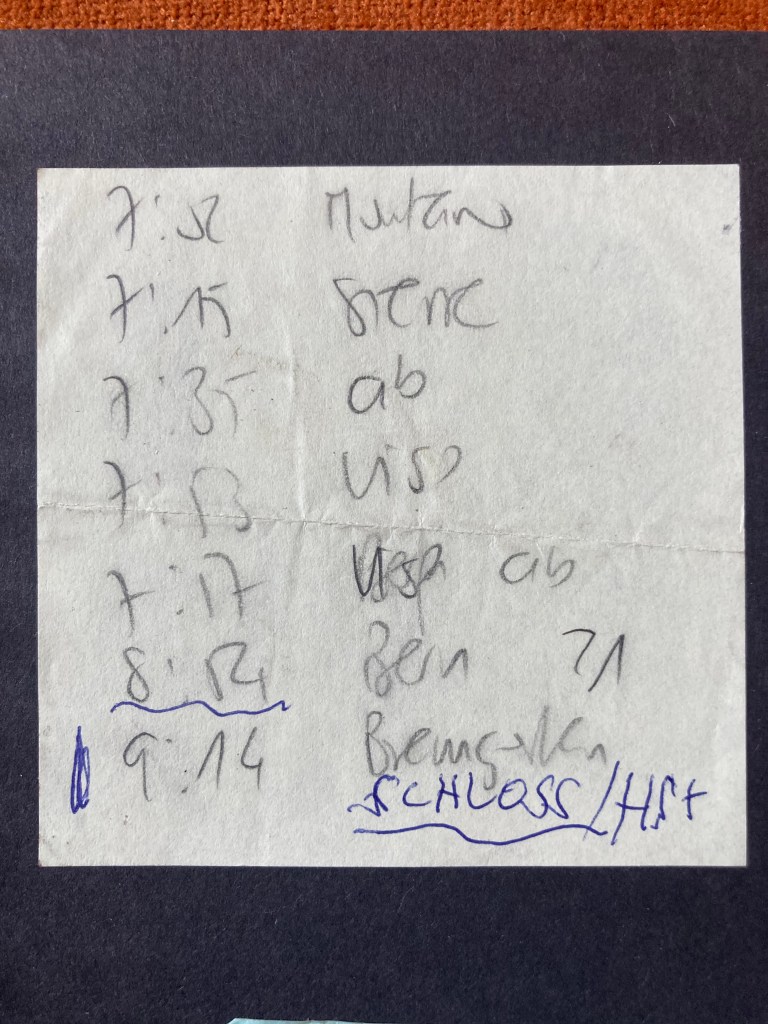 7:52 Montana
7:15 Sierre
7:35 ab
7:53 Visp
7:17 Visp ab
8:54 Bern 21
9:14 Bremgarten
SCHLOSS/HSt